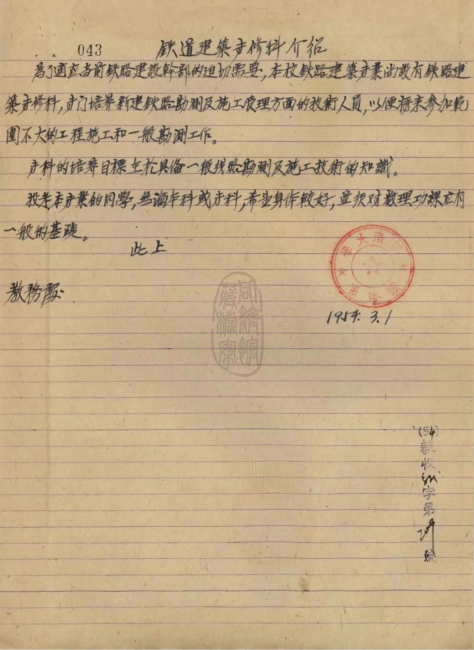 043
铁道建築专修科介绍
為了適应当前铁路建設幹部的迫切需要,本校铁路建築专業出設有铁路建
築专修科,专门培养新建铁路勘测及施工管理方面的技術人員,以便将来参加範
圍不大的工程施工和一般勘测工作。
专科的培养目標立於具备一般线路勘测及施工技術的知識。
投考本专業的同學,無論本科或专科,希望身体較好,並须对数理功課它有
一般的基礎。
此上
教務處
1954.3.1
同濟館藏檔案
(54)
教收
字第
號